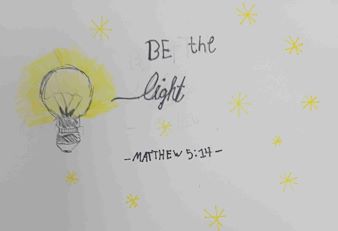 BE the
light
-MATTHEW 5:14-